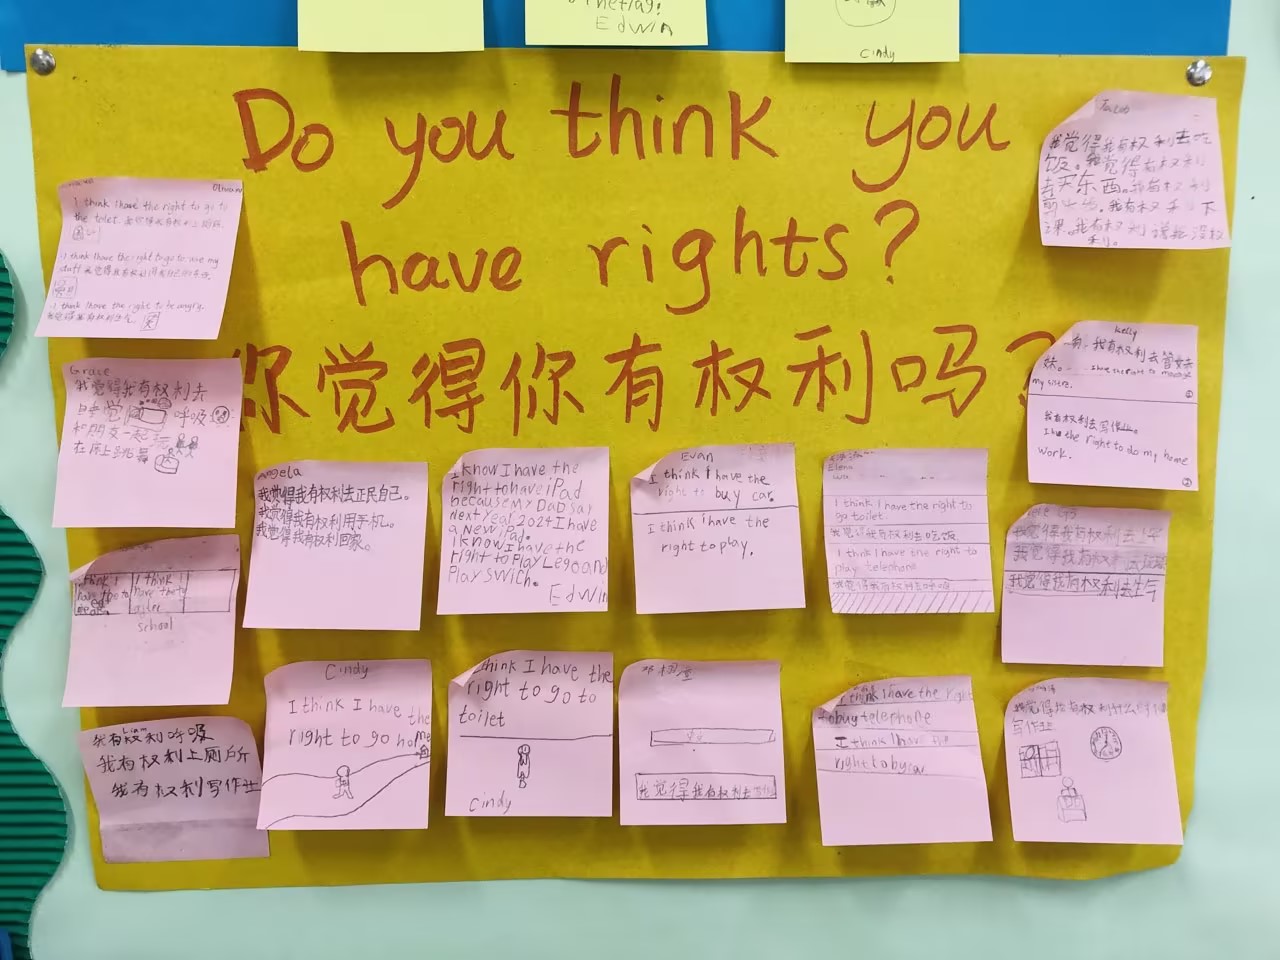 Edwin
Cindy
Do you think you
have rights?
你觉得你有权利吗?
Olivia
I think I have the right to go to
the toilet.
I think I have the right to
stuff
I think I have the right to be angry.
Grace
我觉得我有权利去
呼吸
和朋友一起玩
在床上跳
I think I
I think I
have the
school
我有权利呼吸
我有权利上厕所
我有权利写作业
Angela
我觉得我有权利去
自己。
我觉得我有权利用手机。
我觉得我有权利回家。
I know I have the
right to have iPad
because My Dad say
Next year 2024 I have
a New iPad.
I know I have the
right to Play Lego and
Play Swich.
Edwin
Evan
I think I have the
right to buy car.
I think i have the
right to play.
Elena
I think I have the right to
go toilet.
我觉得我有权利去吃饭
I think I have the right to
play telephone
我觉得我有权利去呼吸
我觉得我有权利去吃
饭。我觉得有权利
去买东西。我有权利
我有权利下
课。我有权利
Kelly
我有权利去管妹
妹。 I have the right to manage
my sister.
①
我有权利去写作业。
I have the right to do my home
work.
②
我觉得我有权利去
我觉得我有权利
我觉得我有权利去生气
Cindy
I think I have the
right to go home
think I have the
right to go to
toilet
Cindy
我觉得我有权利去
I think I have the right
to buy telephone
I think I have the
right to buy
我觉得我有权利什么时候
写作业